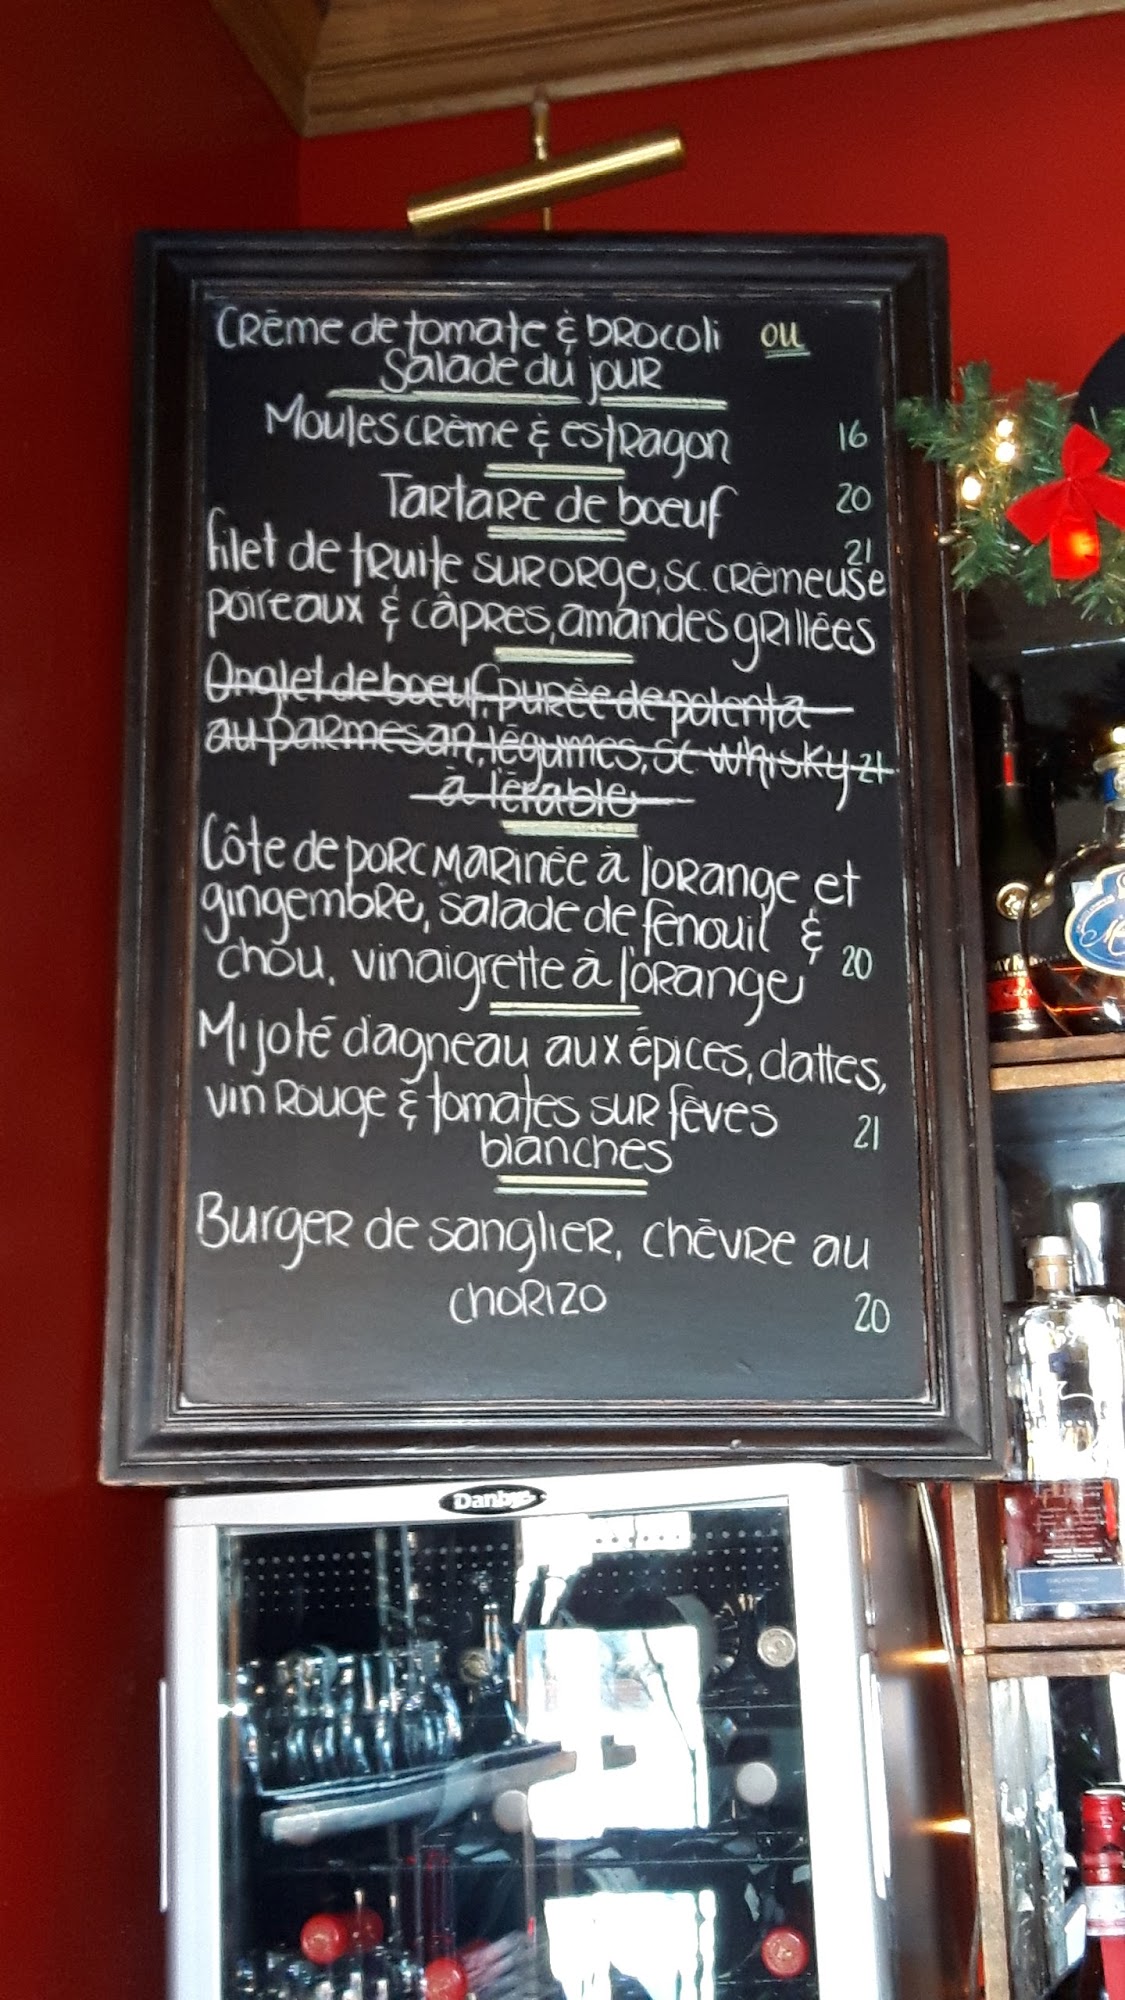 Crème de tomate & brocoli ou
Salade du jour
Moules crème & estragon 16
Tartare de boeuf 20
21
filet de truite sur orge, sc. crèmeuse
poireaux & câpres, amandes grillées
Onglet de boeuf, purée de polenta
au parmesan, légumes, sc whisky 21
à l'érable
Côte de porc marinée à l'orange et
gingembre, salade de fenouil &
chou, vinaigrette à l'orange 20
Mijoté d'agneau aux épices, dattes,
vin rouge & tomates sur fèves 21
blanches
Burger de sanglier, chèvre au
chorizo 20
Danby